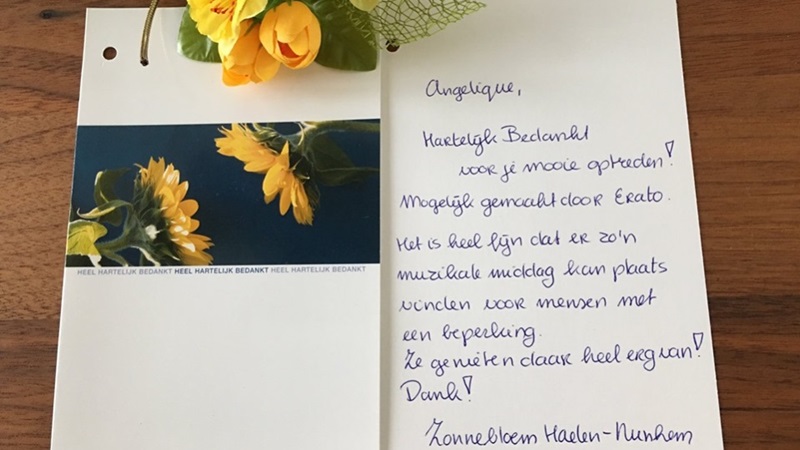 HEEL HARTELIJK BEDANKT HEEL HARTELIJK BEDANKT HEEL HARTELIJK BEDANKT
Angelique,
Hartelijk Bedankt
voor je mooie optreden!
Mogelijk gemaakt door Erato.
Het is heel fijn dat er zo'n
muzikale middag kan plaats
vinden voor mensen met
een beperking.
Ze genieten daar heel erg van!
Dank!
Zonnebloem Haelen-Nunhem